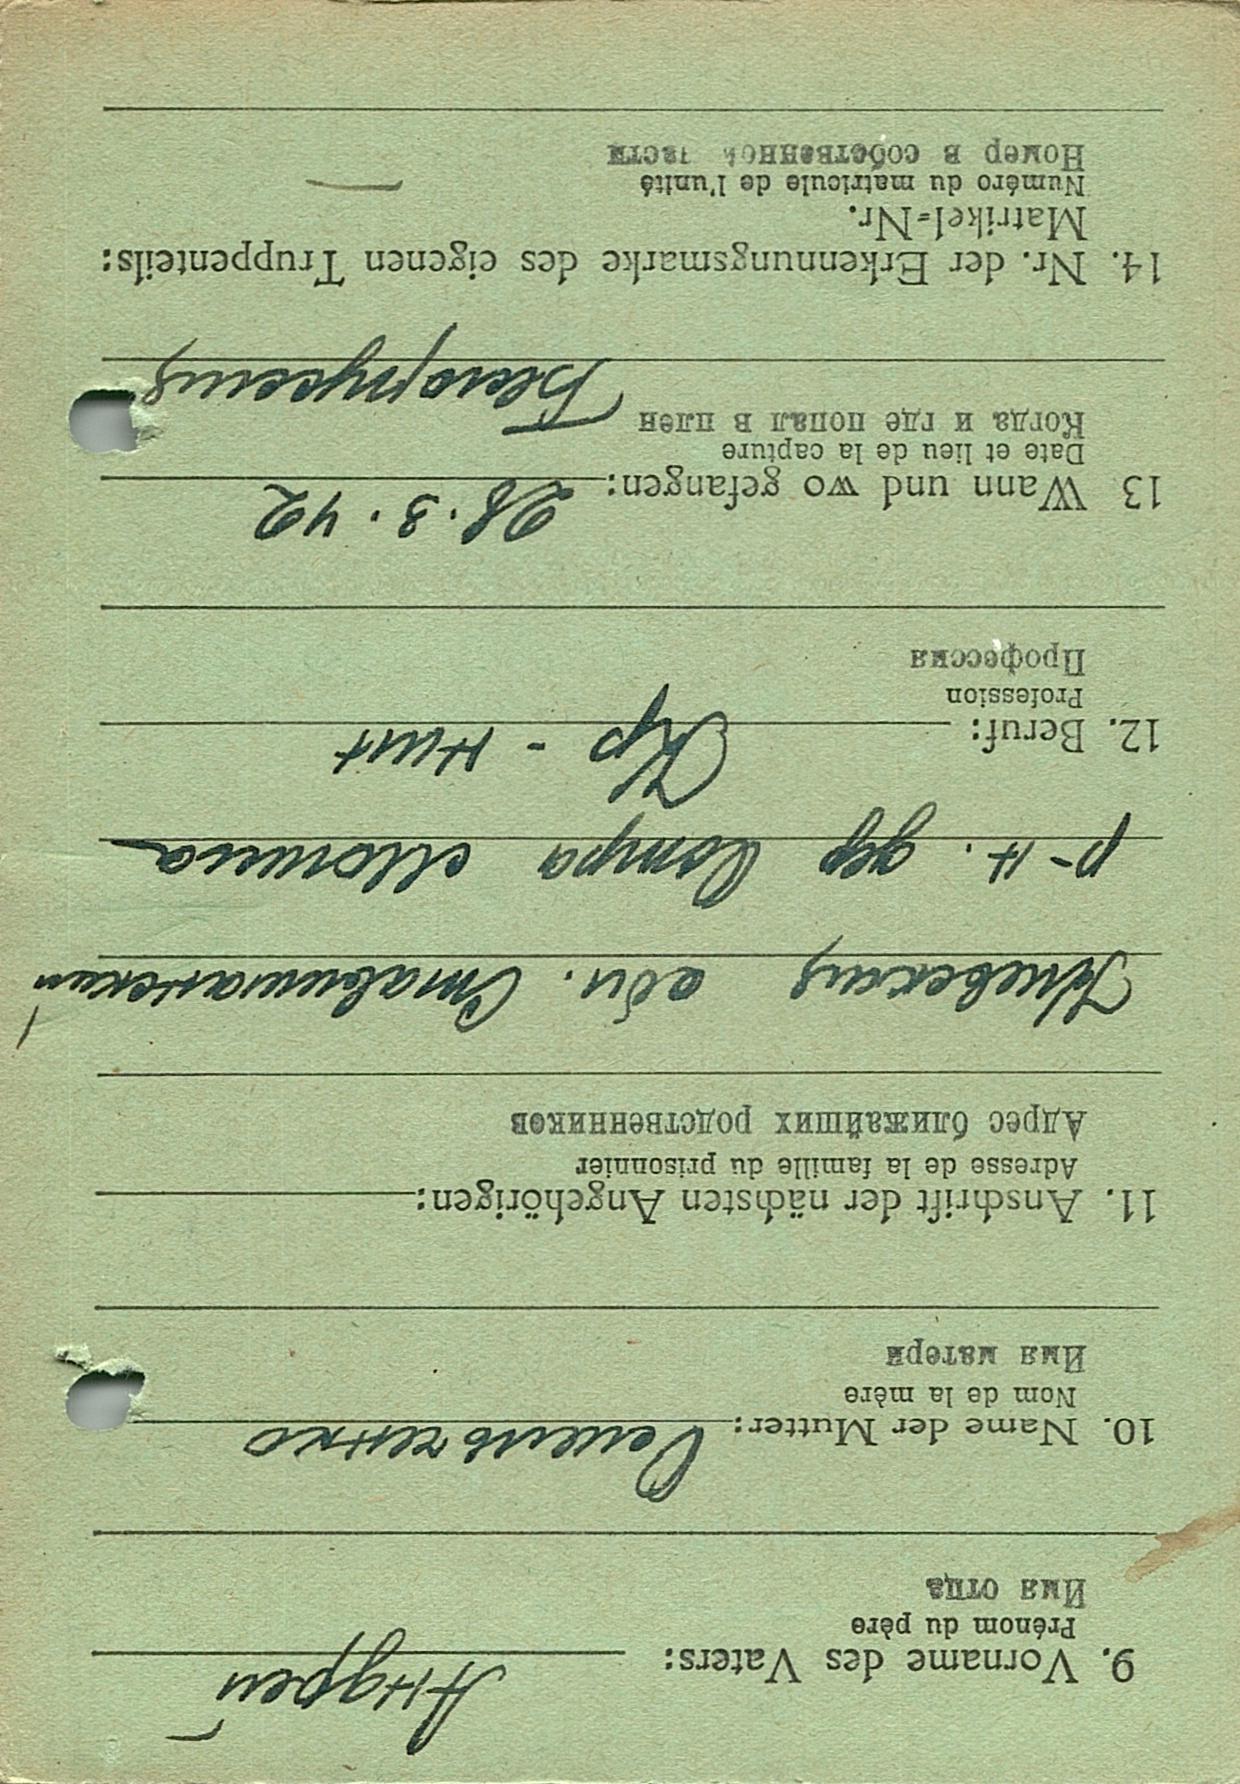 9. Vorname des Vaters: Андрей
Prénom du père
Имя отца
10. Name der Mutter:
Nom de la mère
Имя матери
11. Anschrift der nächsten Angehörigen:
Adresse de la famille du prisonnier
Адрес ближайших родственников
Киевская обл. Ставищанский
р-н. дер
12. Beruf: Кр-нин
Profession
Профессия
13 Wann und wo gefangen: 28.3.42
Date et lieu de la capture
Когда и где попал в плен
Белоруссия
14. Nr. der Erkennungsmarke des eigenen Truppenteils:
Matrikel-Nr.
Numéro du matricule de l'unité —
Номер в собственной части